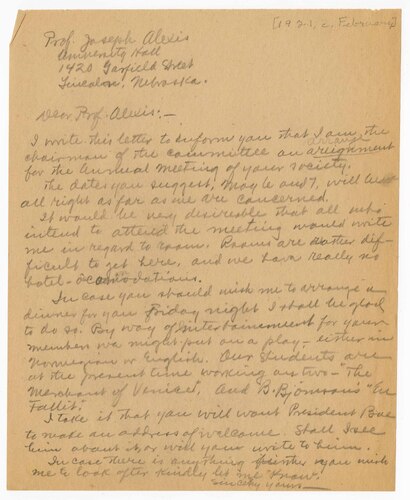 [1921, 2, February]
Prof. Joseph Alexis
University Hall
1420 Garfield Street
Lincoln, Nebraska.
Dear Prof. Alexis:-
I write this letter to inform you that I am the
chairman of the committee on
for the Annual Meeting of your society.
The dates you suggest, May 6 and 7, will be
all right as far as we are concerned.
It would be very desireable that all who
intend to attend the meeting would write
me in regard to room. Rooms are rather dif-
ficult to get here, and we have really no
hotel-accomodations.
In case you should wish me to arrange a
dinner for you Friday night I shall be glad
to do so. By way of entertainment for your
members we might put on a play - either in
Norwegian or English. Our students are
at the present time working on two - "The
Merchant of Venice", and B. Bjørnson's "En
Fallit."
I take it that you will want President Boe
to make an address of welcome. Shall I see
him about it, or will you write to him.
In case there is anything further you wish
me to look after kindly let me know.
Sincerly yours-